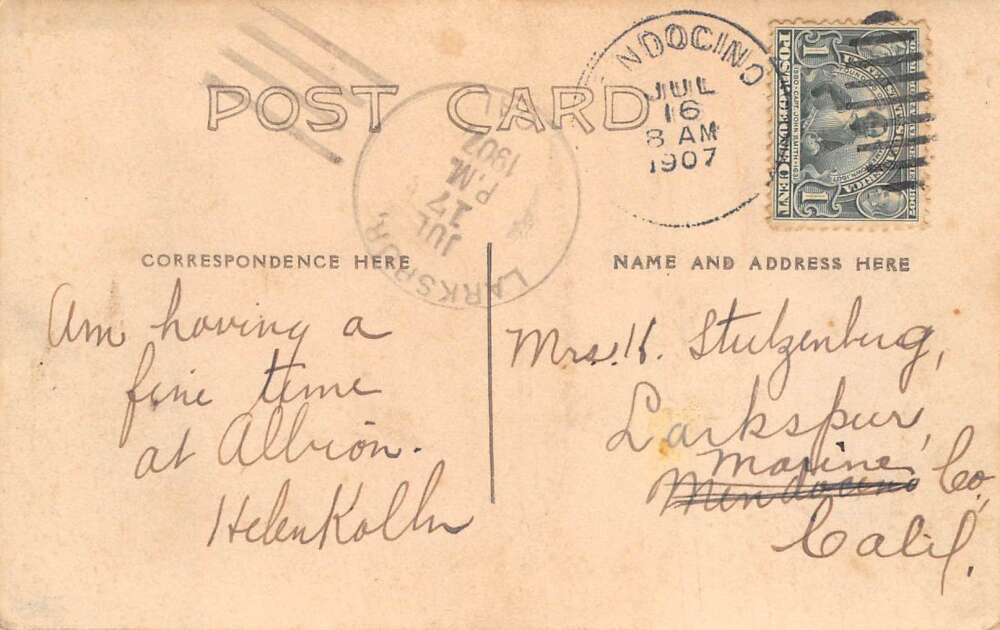 POST CARD
MENDOCINO
JUL
16
8 AM
1907
LARKSPUR,
JUL
17
P.M.
1907
1 POSTAGE ONE CENT 1
1580 - CAPT. JOHN SMITH - 1631
CORRESPONDENCE HERE
Am having a
fine time
at Albion.
Helen Kolln
NAME AND ADDRESS HERE
Mrs. H. Stulzenburg,
Larkspur,
Marine
Mendocino Co,
Calif.